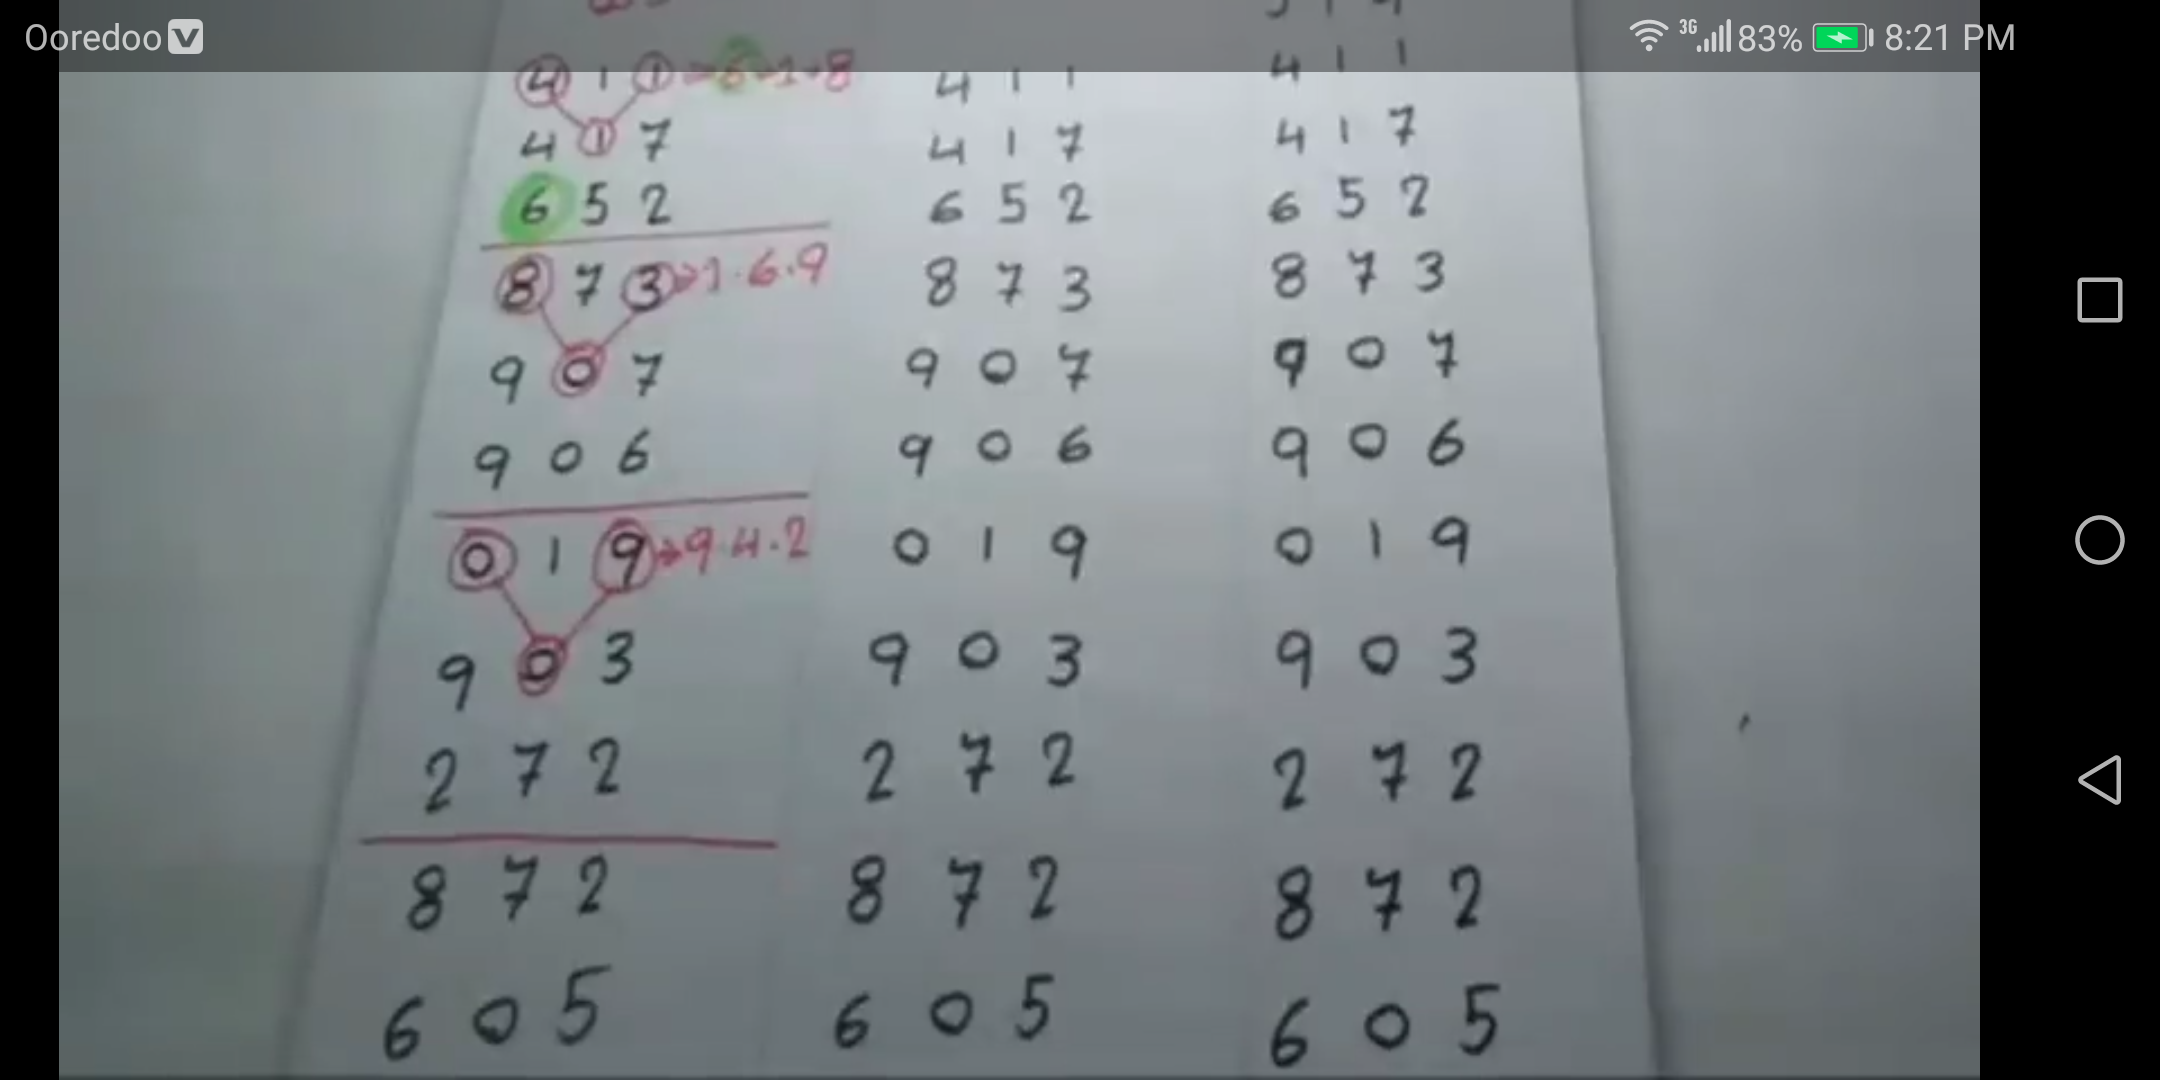 Ooredoo V 3G 83% 8:21 PM
4 1 1 → 6 - 1 - 8 4 1 1 4 1 1
4 1 7 4 1 7 4 1 7
6 5 2 6 5 2 6 5 2
8 7 3 → 1 . 6 . 9 8 7 3 8 7 3
9 0 7 9 0 7 9 0 7
9 0 6 9 0 6 9 0 6
0 1 9 → 9 . 4 . 2 0 1 9 0 1 9
9 0 3 9 0 3 9 0 3
2 7 2 2 7 2 2 7 2
8 7 2 8 7 2 8 7 2
6 0 5 6 0 5 6 0 5